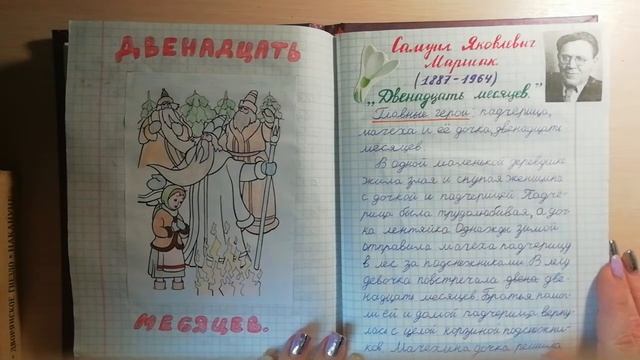 ДВЕНАДЦАТЬ
МЕСЯЦЕВ.
Самуил Яковлевич
Маршак
(1887-1964)
„Двенадцать месяцев."
Главные герои: падчерица,
мачеха и её дочка, двенадцать
месяцев.
В одной маленькой деревушке
жила злая и скупая женщина
с дочкой и падчерицей. Падче-
рица была трудолюбивая, а доч-
ка лентяйка. Однажды зимой
отправила мачеха падчерицу
в лес за подснежниками. В лесу
девочка повстречала двена две-
надцать месяцев. Братья помог-
ли ей и домой падчерица верну-
лась с целой корзиной подснежни-
ков. Мачехина дочка решила